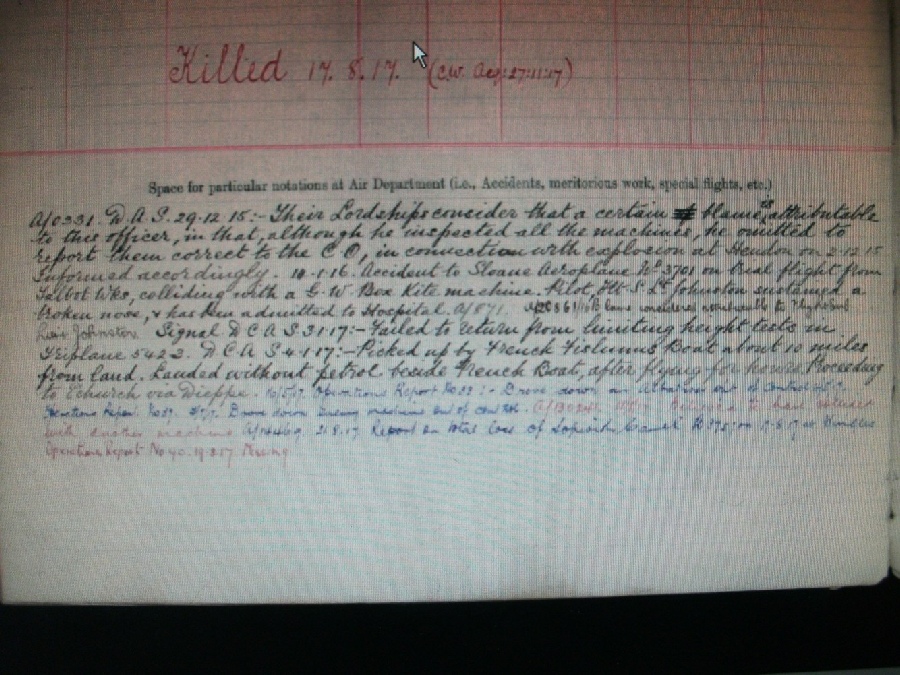 Killed 17.8.17. (C.W. Acq: 27:11:17)
Space for particular notations at Air Department (i.e., Accidents, meritorious work, special flights, etc.)
D.A.S. 29.12.15:- Their Lordships consider that a certain blame is attributable
to this officer, in that, although he inspected all the machines, he omitted to
report them correct to the C O, in connection with explosion at Hendon on 2-12-15
Informed accordingly. 10-1-16. Accident to Sloane Aeroplane No 3701 on trial flight from
Talbot Wks, colliding with a G.W. Box Kite machine. Pilot, Flt S Lt Johnston sustained a
broken nose, & has been admitted to Hospital. A/871. considered attributable to Flight Sub
Lieut Johnston. Signal D C A S 3.1.17:- Failed to return from limiting height tests in
Triplane 5422. D.C.A.S. 4.1.17:- Picked up by French Fishing Boat about 10 miles
from land. Landed without petrol beside French Boat, after flying for hours. Proceeding
to Echurch via Dieppe. Operations Report No :- Drove down an Albatros out of control
Operations Report No Drove down Enemy machine out of control. to have collided
with another machine. 21.8.17 Report on total loss of Sopwith Camel on 17.8.17
Operations Report No 40. Missing